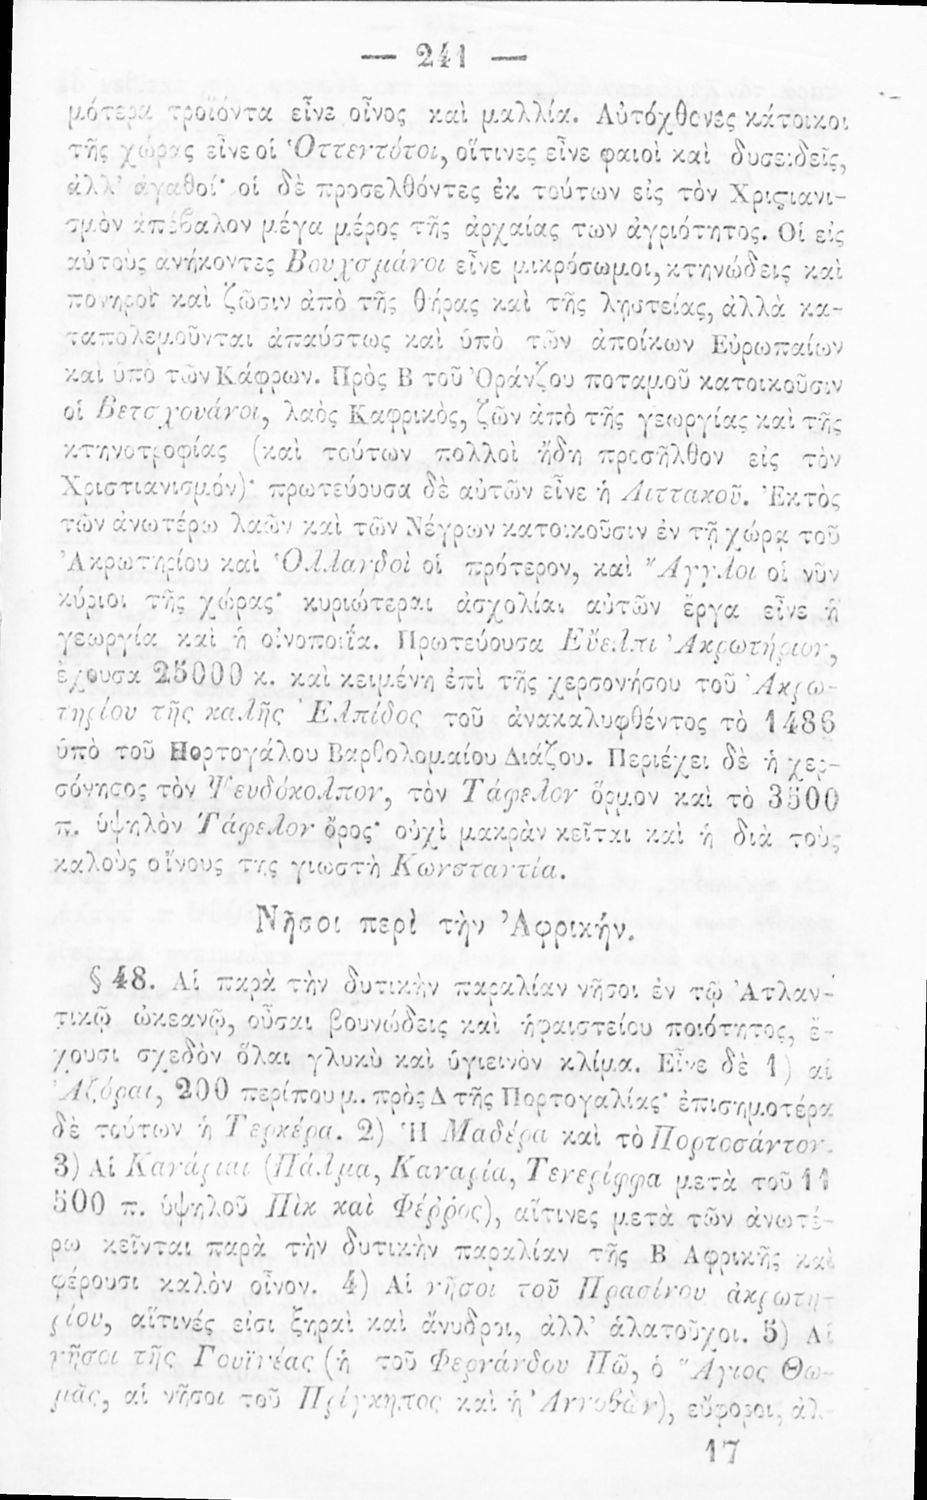 — 241 —
μότερα προϊόντα εἶνε οἶνος καὶ μαλλία. Αὐτόχθονες κάτοικοι
τῆς χώρας εἶνε οἱ Ὀττεντότοι, οἵτινες εἶνε φαιοὶ καὶ δυσειδεῖς,
ἀλλ' ἀγαθοί· οἱ δὲ προσελθόντες ἐκ τούτων εἰς τὸν Χριϛιανι-
σμὸν ἀπέβαλον μέγα μέρος τῆς ἀρχαίας των ἀγριότητος. Οἱ εἰς
αὐτοὺς ἀνήκοντες Βουχσμάνοι εἶνε μικρόσωμοι, κτηνώδεις καὶ
πονηροὶ καὶ ζῶσιν ἀπὸ τῆς θήρας καὶ τῆς λῃστείας, ἀλλὰ κα-
ταπολεμοῦνται ἀπαύστως καὶ ὑπὸ τῶν ἀποίκων Εὐρωπαίων
καὶ ὑπὸ τῶν Κάφρων. Πρὸς Β τοῦ Ὀράνζου ποταμοῦ κατοικοῦσιν
οἱ Βετσχουάνοι, λαὸς Καφρικὸς, ζῶν ἀπὸ τῆς γεωργίας καὶ τῆς
κτηνοτροφίας (καὶ τούτων πολλοὶ ἤδη προσῆλθον εἰς τὸν
Χριστιανισμόν)· πρωτεύουσα δὲ αὐτῶν εἶνε ἡ Λιττακοῦ. Ἐκτὸς
τῶν ἀνωτέρω λαῶν καὶ τῶν Νέγρων κατοικοῦσιν ἐν τῇ χώρᾳ τοῦ
Ἀκρωτηρίου καὶ Ὁλλανδοὶ οἱ πρότερον, καὶ Ἄγγλοι οἱ νῦν
κύριοι τῆς χώρας· κυριώτεραι ἀσχολίαι αὐτῶν ἔργα εἶνε ἡ
γεωργία καὶ ἡ οἰνοποιΐα. Πρωτεύουσα Εὔελπι Ἀκρωτήριον,
ἔχουσα 25000 κ. καὶ κειμένη ἐπὶ τῆς χερσονήσου τοῦ Ἀκρω-
τηρίου τῆς καλῆς Ἐλπίδος τοῦ ἀνακαλυφθέντος τὸ 1486
ὑπὸ τοῦ Πορτογάλου Βαρθολομαίου Διάζου. Περιέχει δὲ ἡ χερ-
σόνησος τὸν Ψευδόκολπον, τὸν Τάφελον ὅρμον καὶ τὸ 3500
π. ὑψηλὸν Τάφελον ὄρος· οὐχὶ μακρὰν κεῖται καὶ ἡ διὰ τοὺς
καλοὺς οἴνους της γνωστὴ Κωνσταντία.
Νῆσοι περὶ τὴν Ἀφρικήν.
§ 48. Αἱ παρὰ τὴν δυτικὴν παραλίαν νῆσοι ἐν τῷ Ἀτλαν-
τικῷ ὠκεανῷ, οὖσαι βουνώδεις καὶ ἡφαιστείου ποιότητος, ἔ-
χουσι σχεδὸν ὅλαι γλυκὺ καὶ ὑγιεινὸν κλίμα. Εἶνε δὲ 1) αἱ
Ἀζόραι, 200 περίπου μ. πρὸς Δ τῆς Πορτογαλίας· ἐπισημοτέρα
δὲ τούτων ἡ Τερκέρα. 2) Ἡ Μαδέρα καὶ τὸ Πορτοσάντον.
3) Αἱ Κανάριαι (Πάλμα, Καναρία, Τενερίφφα μετὰ τοῦ 11
500 π. ὑψηλοῦ Πὶκ καὶ Φέῤῥος), αἵτινες μετὰ τῶν ἀνωτέ-
ρω κεῖνται παρὰ τὴν δυτικὴν παραλίαν τῆς Β Ἀφρικῆς καὶ
φέρουσι καλὸν οἶνον. 4) Αἱ νῆσοι τοῦ Πρασίνου ἀκρωτη-
ρίου, αἵτινές εἰσι ξηραὶ καὶ ἄνυδροι, ἀλλ' ἁλατοῦχοι. 5) Αἱ
νῆσοι τῆς Γουϊνέας (ἡ τοῦ Φερνάνδου Πῶ, ὁ Ἅγιος Θω-
μᾶς, αἱ νῆσοι τοῦ Πρίγκηπος καὶ ἡ Ἀννοβὼν), εὔφοροι, ἀλ-
17